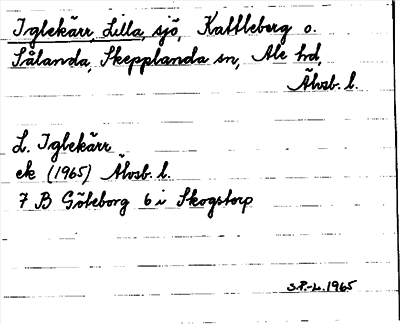 Iglekärr, Lilla, sjö, Kattleberg o.
Sålanda, Skepplanda sn, Ale hd,
Älvsb. l.
L. Iglekärr
ek (1965) Älvsb. l.
7 B Göteborg 6 i Skogstorp
S.P.-L. 1965